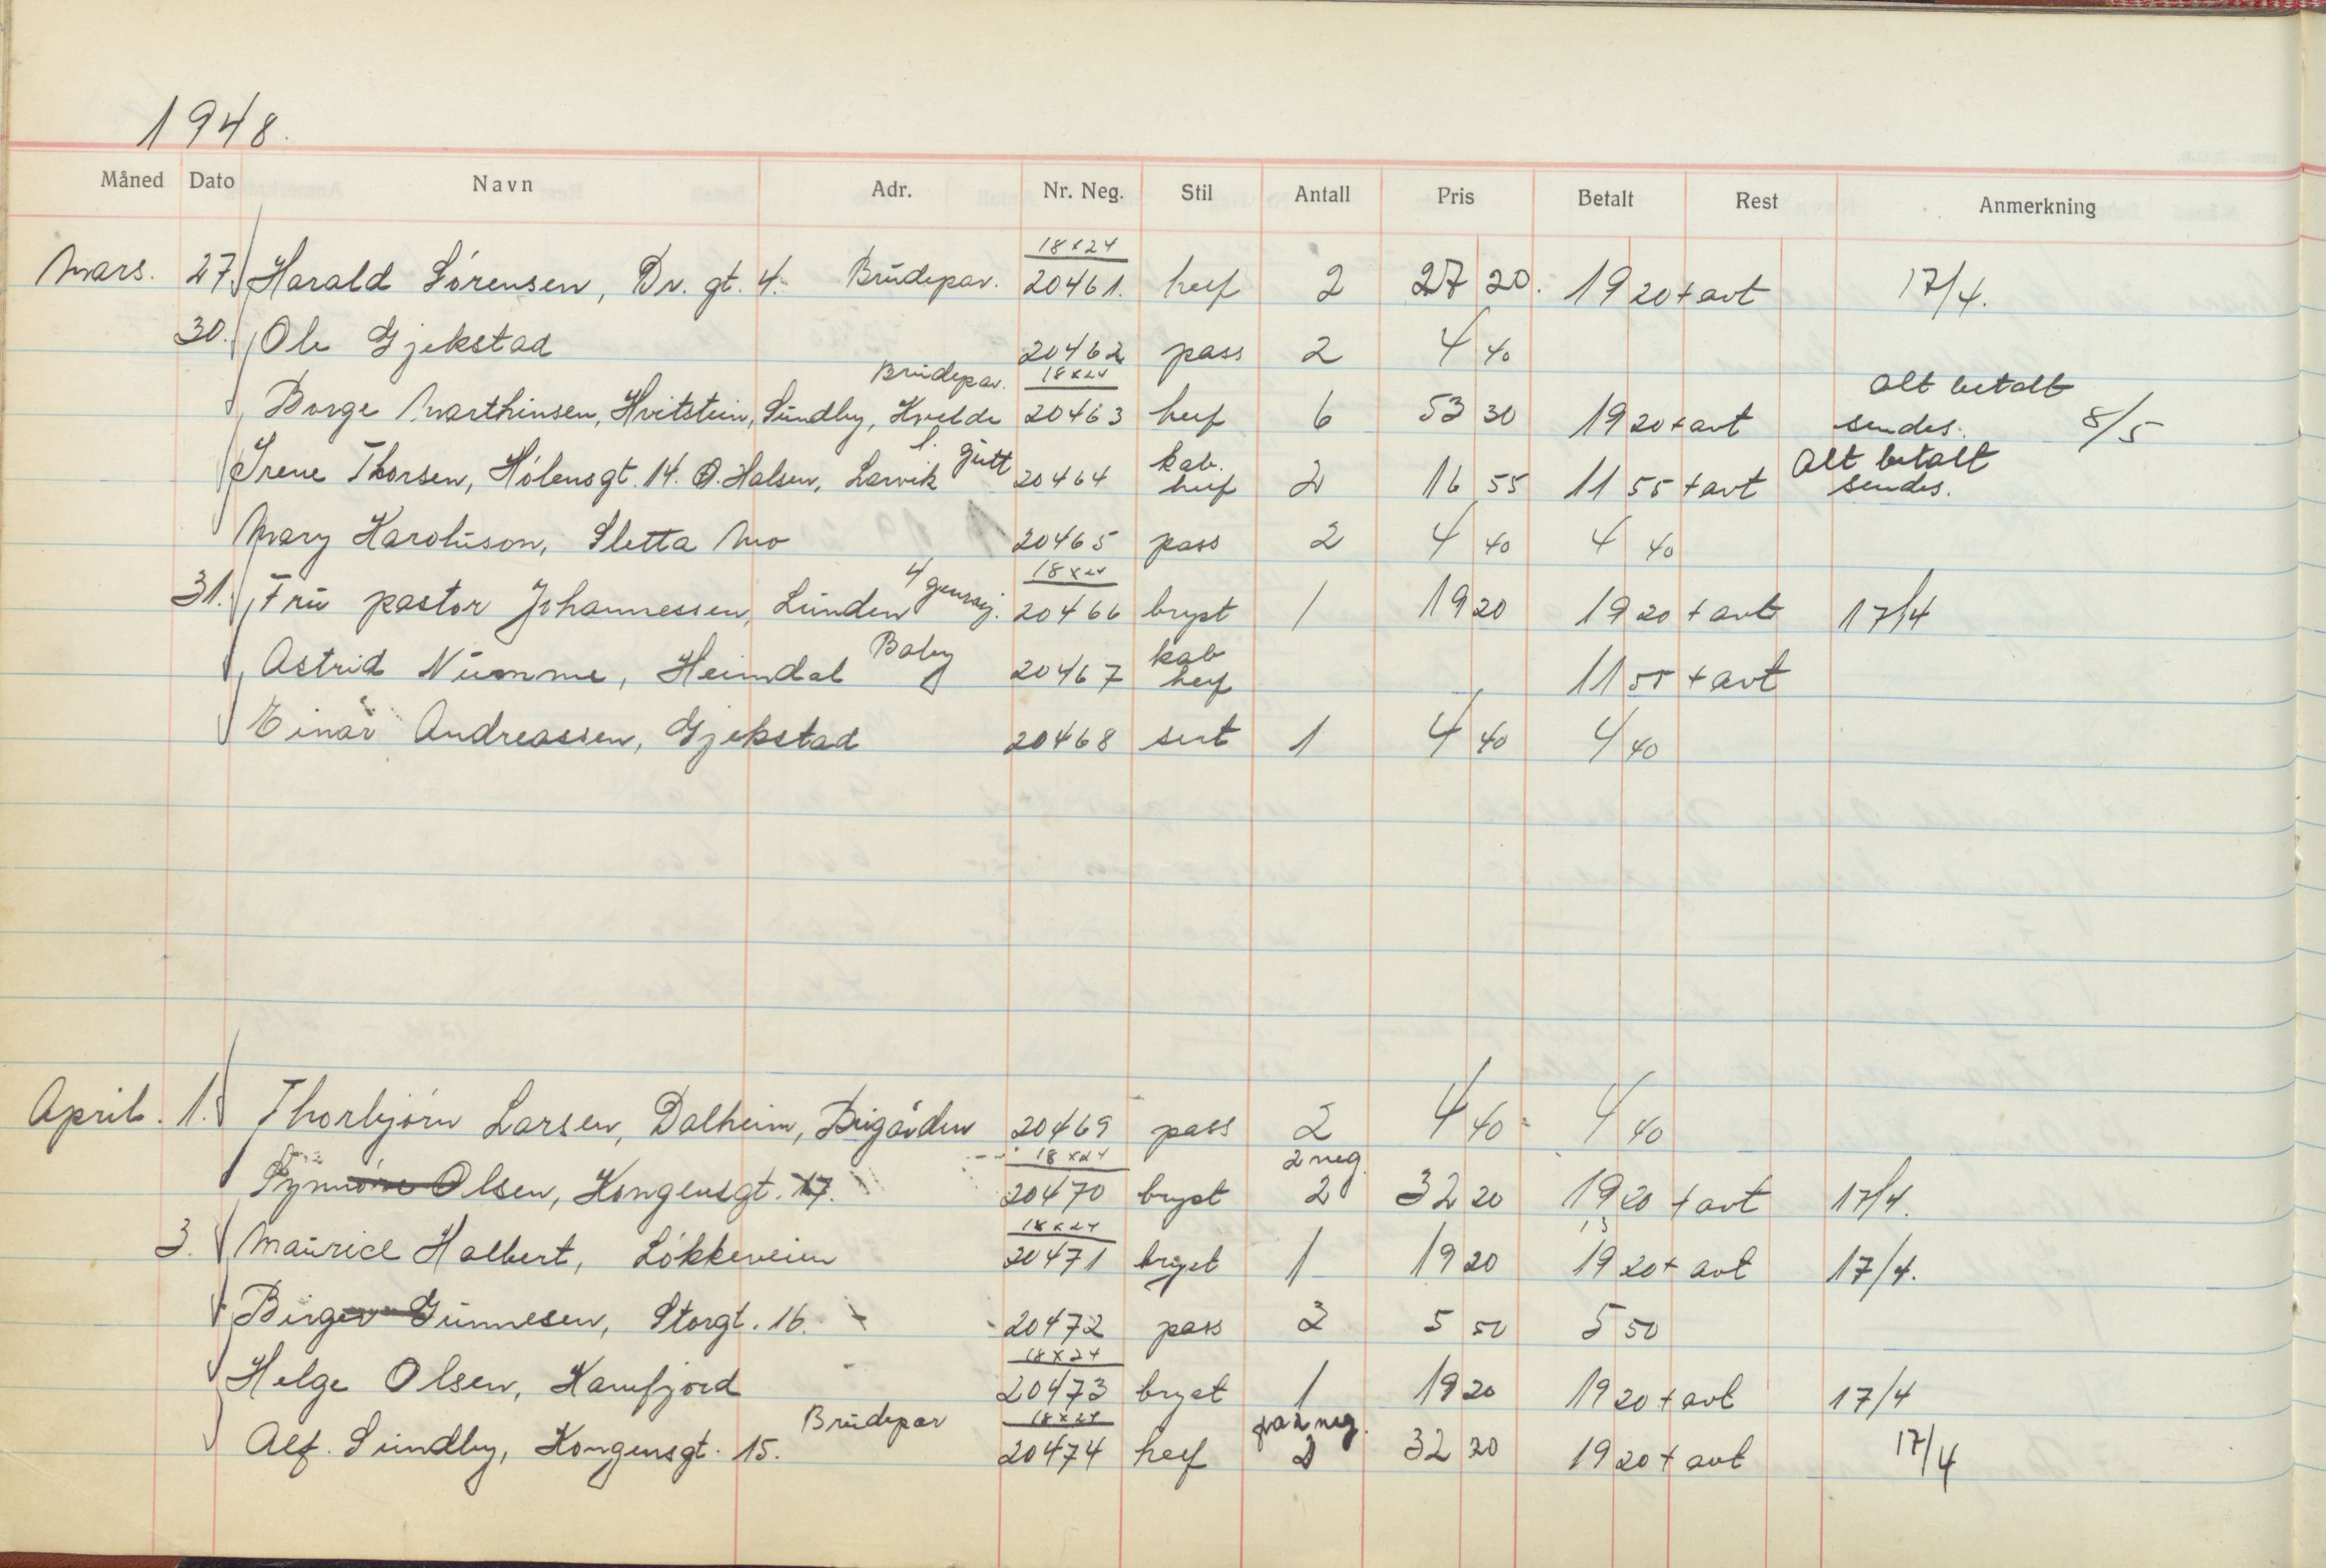 1948.
Måned Dato Navn Adr. Nr. Neg. Stil Antall Pris Betalt Rest Anmerkning
18x24
Mars. 27. Harald Sørensen, Dr. gt. 4. Brudepar. 20461. helf 2 27 20. 19 20 + avt 17/4.
30. Ole Gjekstad 20462 pass 2 4 40
Brudepar. 18x24 Alt betalt
Borge Marthinsen, Hvitstein, Sundby, Kvelde 20463 helf 6 53 30 19 20 + avt sendes. 8/5
l. gutt kab. Alt betalt
Irene Thorsen, Hølensgt. 14. Ø. Halsen, Larvik 20464 helf 2 16 55 11 55 + avt sendes.
Mary Karoluson, Sletta Mo 20465 pass 2 4 40 4 40
4 18x24
31. Fru pastor Johannessen, Lunden 20466 bryst 1 19 20 19 20 + avt 17/4
Baby kab
Astrid Numme, Heimdal 20467 helf 11 55 + avt
Einar Andreassen, Gjekstad 20468 sert 1 4 40 4 40
April. 1. Thorbjørn Larsen, Dalheim, Brigården 20469 pass 2 4 40 4 40
18x24 2 neg.
Synnøve Olsen, Kongensgt. 17. 20470 bryst 2 32 20 19 20 + avt 17/4.
18x24
3. Maurice Halbert, Løkkeveien 20471 bryst 1 19 20 19 20 + avt 17/4.
Birger Gunnesen, Storgt. 16. 20472 pass 3 5 50 5 50
18x24
Helge Olsen, Kamfjord 20473 bryst 1 19 20 19 20 + avt 17/4
Brudepar 18x24 på 2 neg.
Alf. Sundby, Kongensgt. 15. 20474 helf 2 32 20 19 20 + avt 17/4